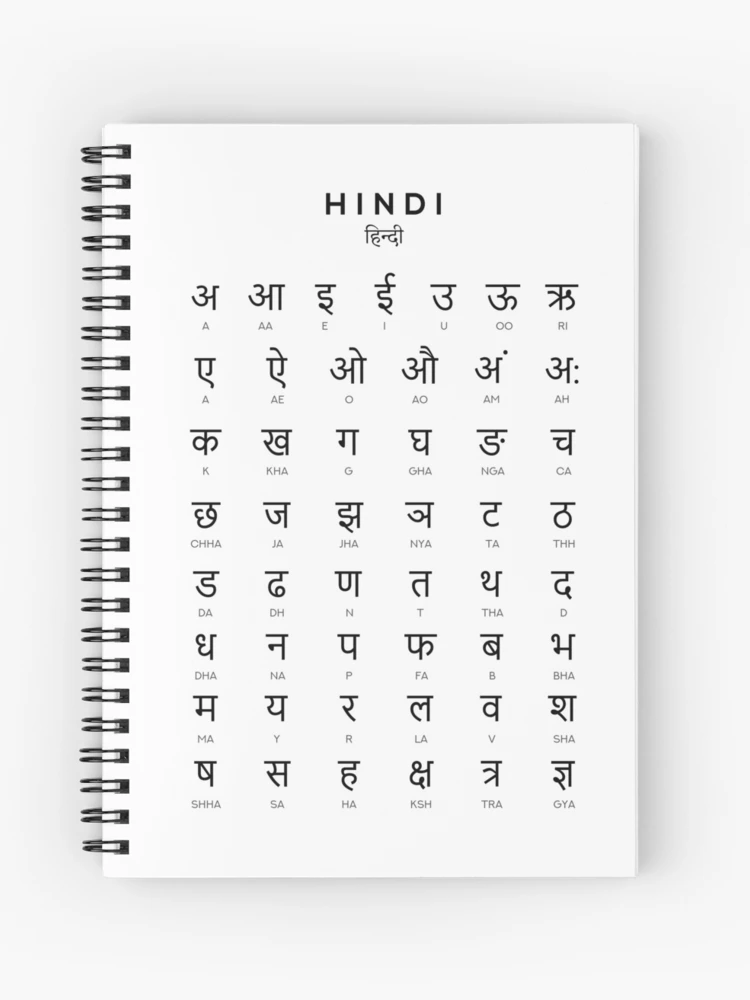 HINDI
हिन्दी
अ आ इ ई उ ऊ ऋ
A AA E I U OO RI
ए ऐ ओ औ अं अः
A AE O AO AM AH
क ख ग घ ङ च
K KHA G GHA NGA CA
छ ज झ ञ ट ठ
CHHA JA JHA NYA TA THH
ड ढ ण त थ द
DA DH N T THA D
ध न प फ ब भ
DHA NA P FA B BHA
म य र ल व श
MA Y R LA V SHA
ष स ह क्ष त्र ज्ञ
SHHA SA HA KSH TRA GYA